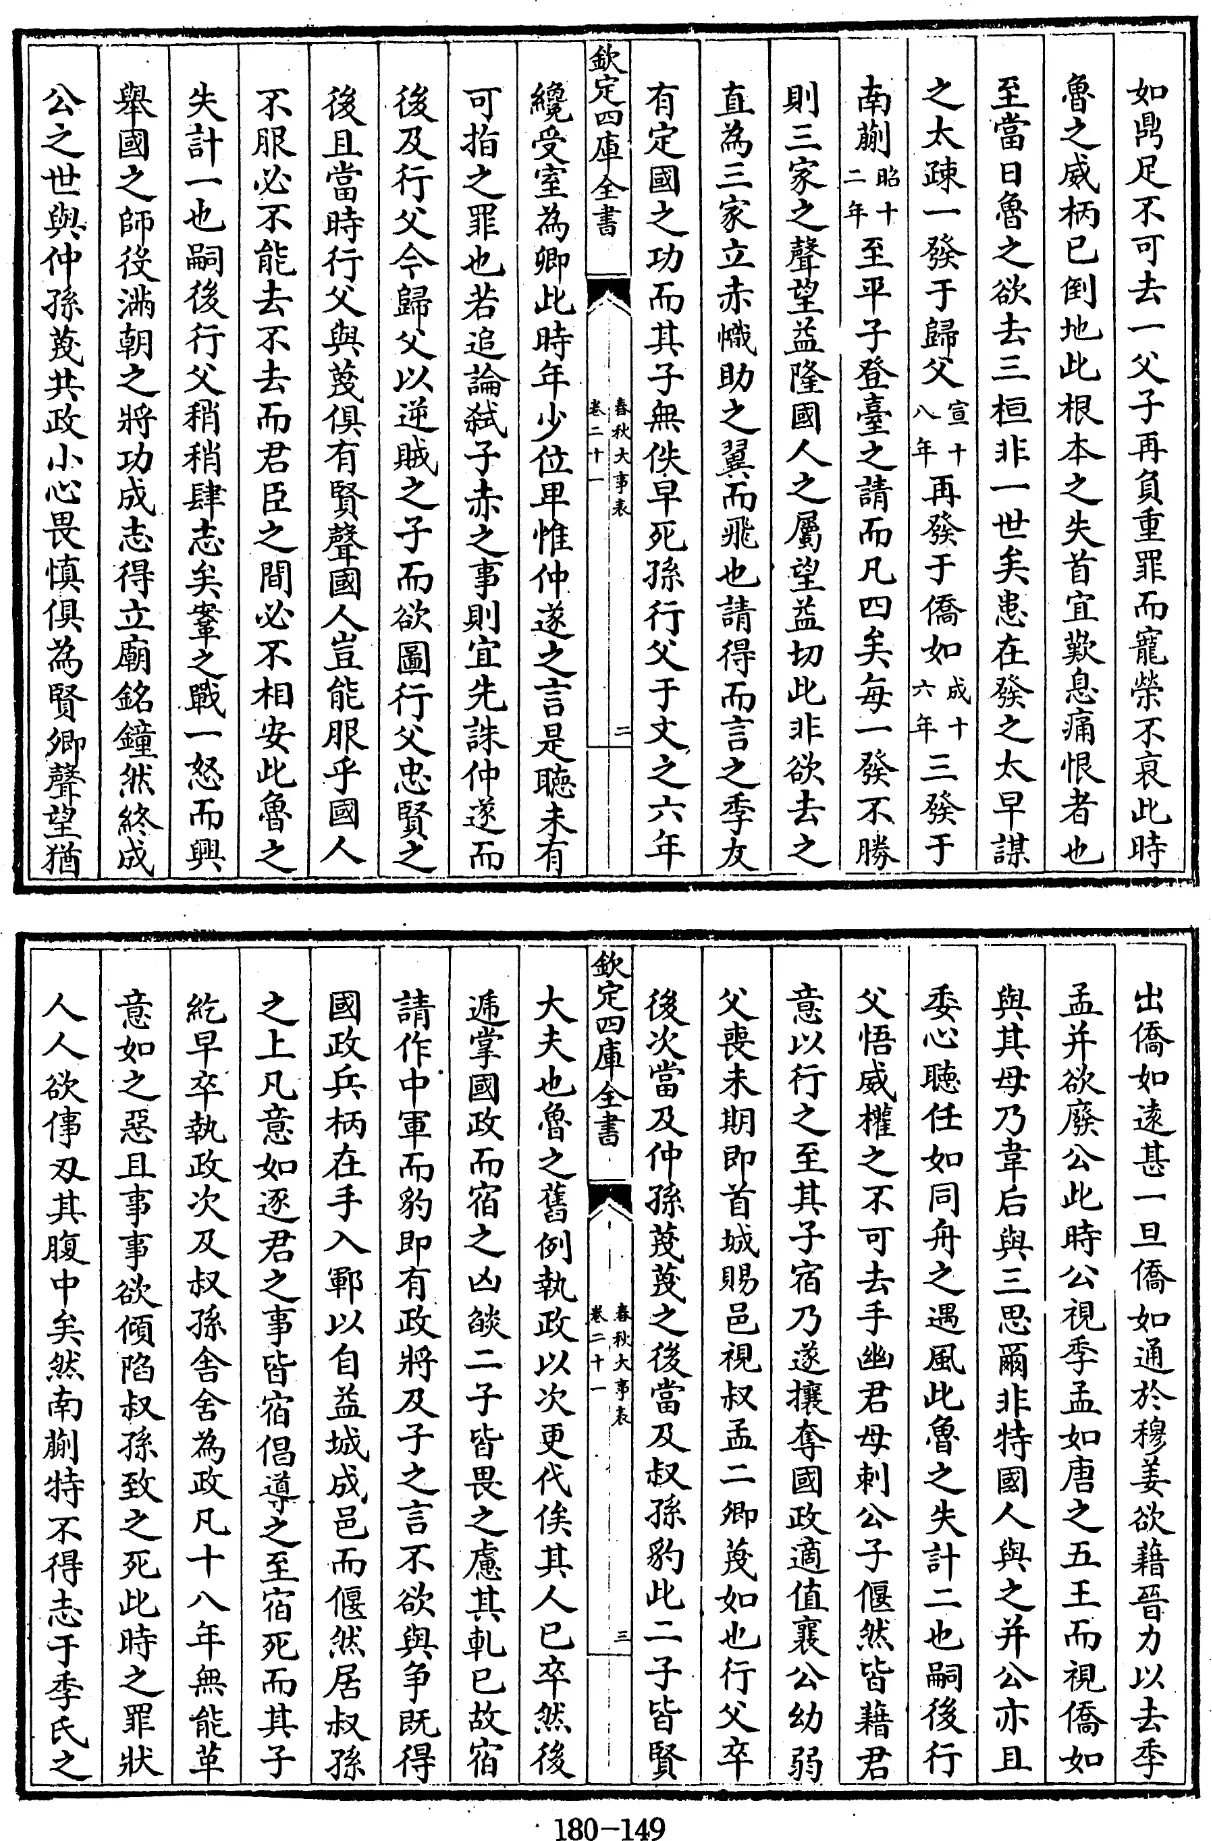 如鼎足不可去一父子再負重罪而寵榮不衰此時
魯之威柄已倒地此根本之失首宜歎息痛恨者也
至當日魯之欲去三桓非一世矣患在發之太早謀
之太疎一發于歸父宣十八年再發于僑如成十六年三發于
南蒯昭十二年至平子登臺之請而凡四矣每一發不勝
則三家之聲望益隆國人之屬望益切此非欲去之
直為三家立赤幟助之翼而飛也請得而言之季友
有定國之功而其子無佚早死孫行父于文之六年
欽定四庫全書
春秋大事表
卷二十一
二
纔受室為卿此時年少位卑惟仲遂之言是聽未有
可指之罪也若追論弒子赤之事則宜先誅仲遂而
後及行父今歸父以逆賊之子而欲圖行父忠賢之
後且當時行父與蔑俱有賢聲國人豈能服乎國人
不服必不能去不去而君臣之間必不相安此魯之
失計一也嗣後行父稍稍肆志矣鞌之戰一怒而興
舉國之師役滿朝之將功成志得立廟銘鐘然終成
公之世與仲孫蔑共政小心畏慎俱為賢卿聲望猶
出僑如遠甚一旦僑如通於穆姜欲藉晉力以去季
孟并欲廢公此時公視季孟如唐之五王而視僑如
與其母乃韋后與三思爾非特國人與之并公亦且
委心聽任如同舟之遇風此魯之失計二也嗣後行
父悟威權之不可去手幽君母刺公子偃然皆藉君
意以行之至其子宿乃遂攘奪國政適值襄公幼弱
父喪未期即首城賜邑視叔孟二卿蔑如也行父卒
後次當及仲孫蔑蔑之後當及叔孫豹此二子皆賢
欽定四庫全書
春秋大事表
卷二十一
三
大夫也魯之舊例執政以次更代俟其人已卒然後
遞掌國政而宿之凶燄二子皆畏之慮其軋已故宿
請作中軍而豹即有政將及子之言不欲與争既得
國政兵柄在手入鄆以自益城成邑而偃然居叔孫
之上凡意如逐君之事皆宿倡導之至宿死而其子
紇早卒執政次及叔孫舍舍為政凡十八年無能革
意如之惡且事事欲傾陷叔孫致之死此時之罪狀
人人欲倳刃其腹中矣然南蒯特不得志于季氏之
180-149